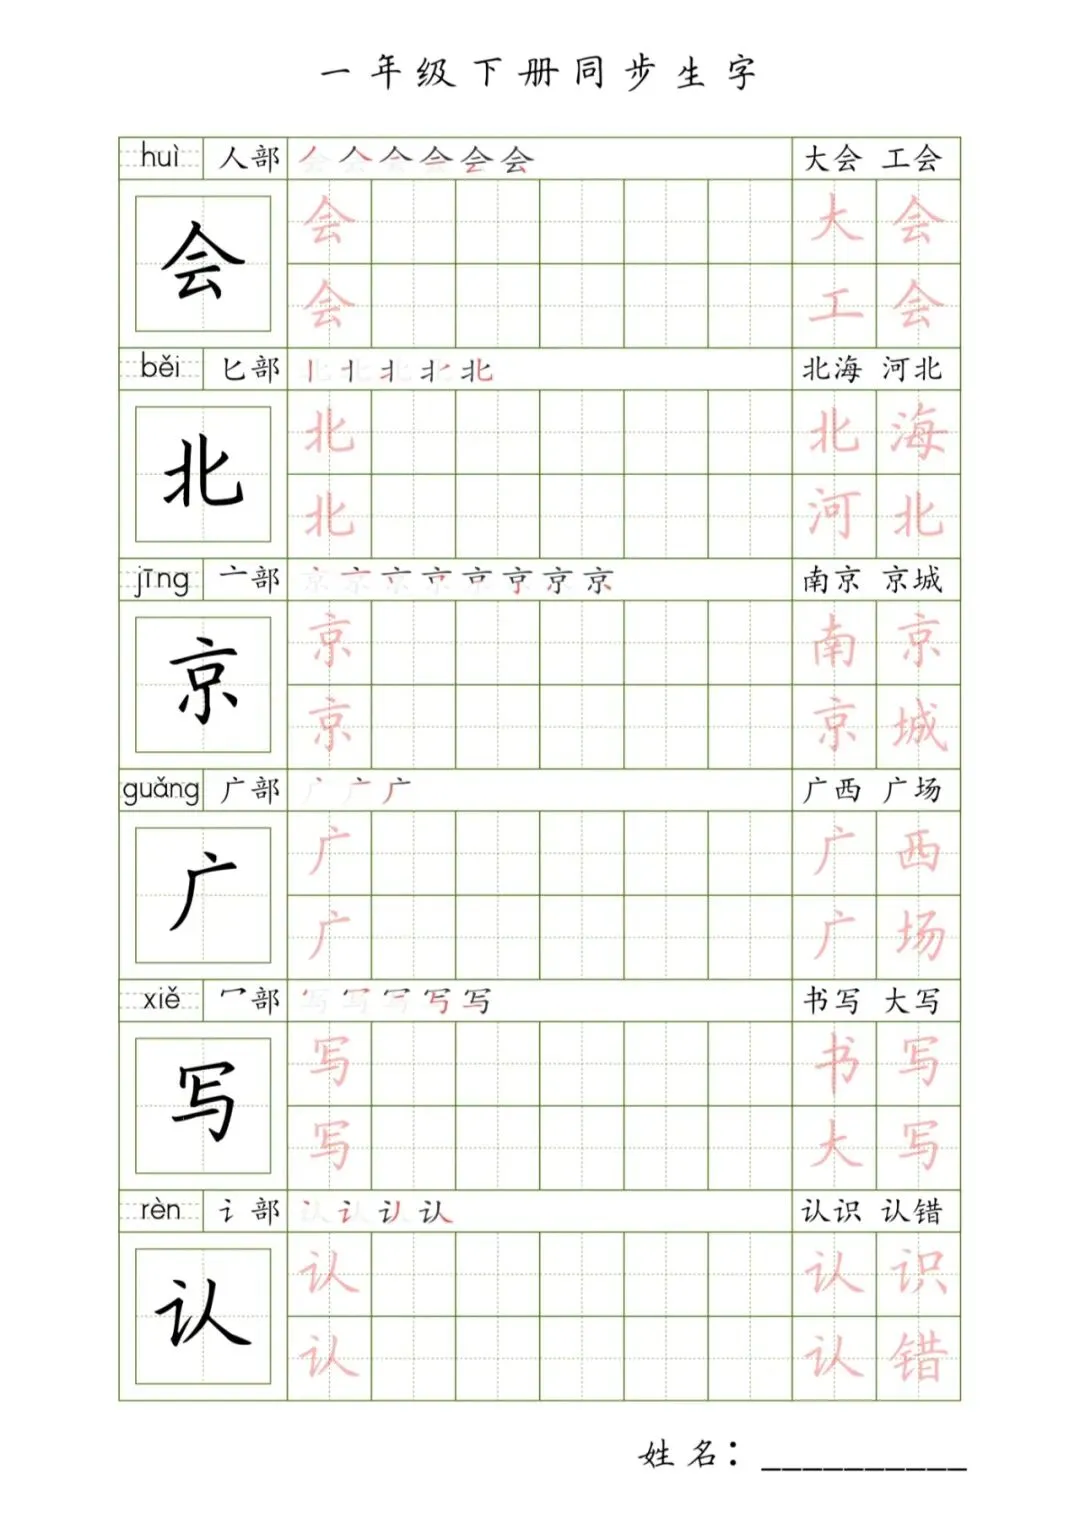 一年级下册同步生字
huì 人部 会会会会会会 大会 工会
会 会 大会
会 工会
běi 匕部 北北北北北 北海 河北
北 北 北海
北 河北
jīng 亠部 京京京京京京京京 南京 京城
京 京 南京
京 京城
guǎng 广部 广广广 广西 广场
广 广 广西
广 广场
xiě 冖部 写写写写写 书写 大写
写 写 书写
写 大写
rèn 讠部 认认认认 认识 认错
认 认 认识
认 认错
姓名：__________